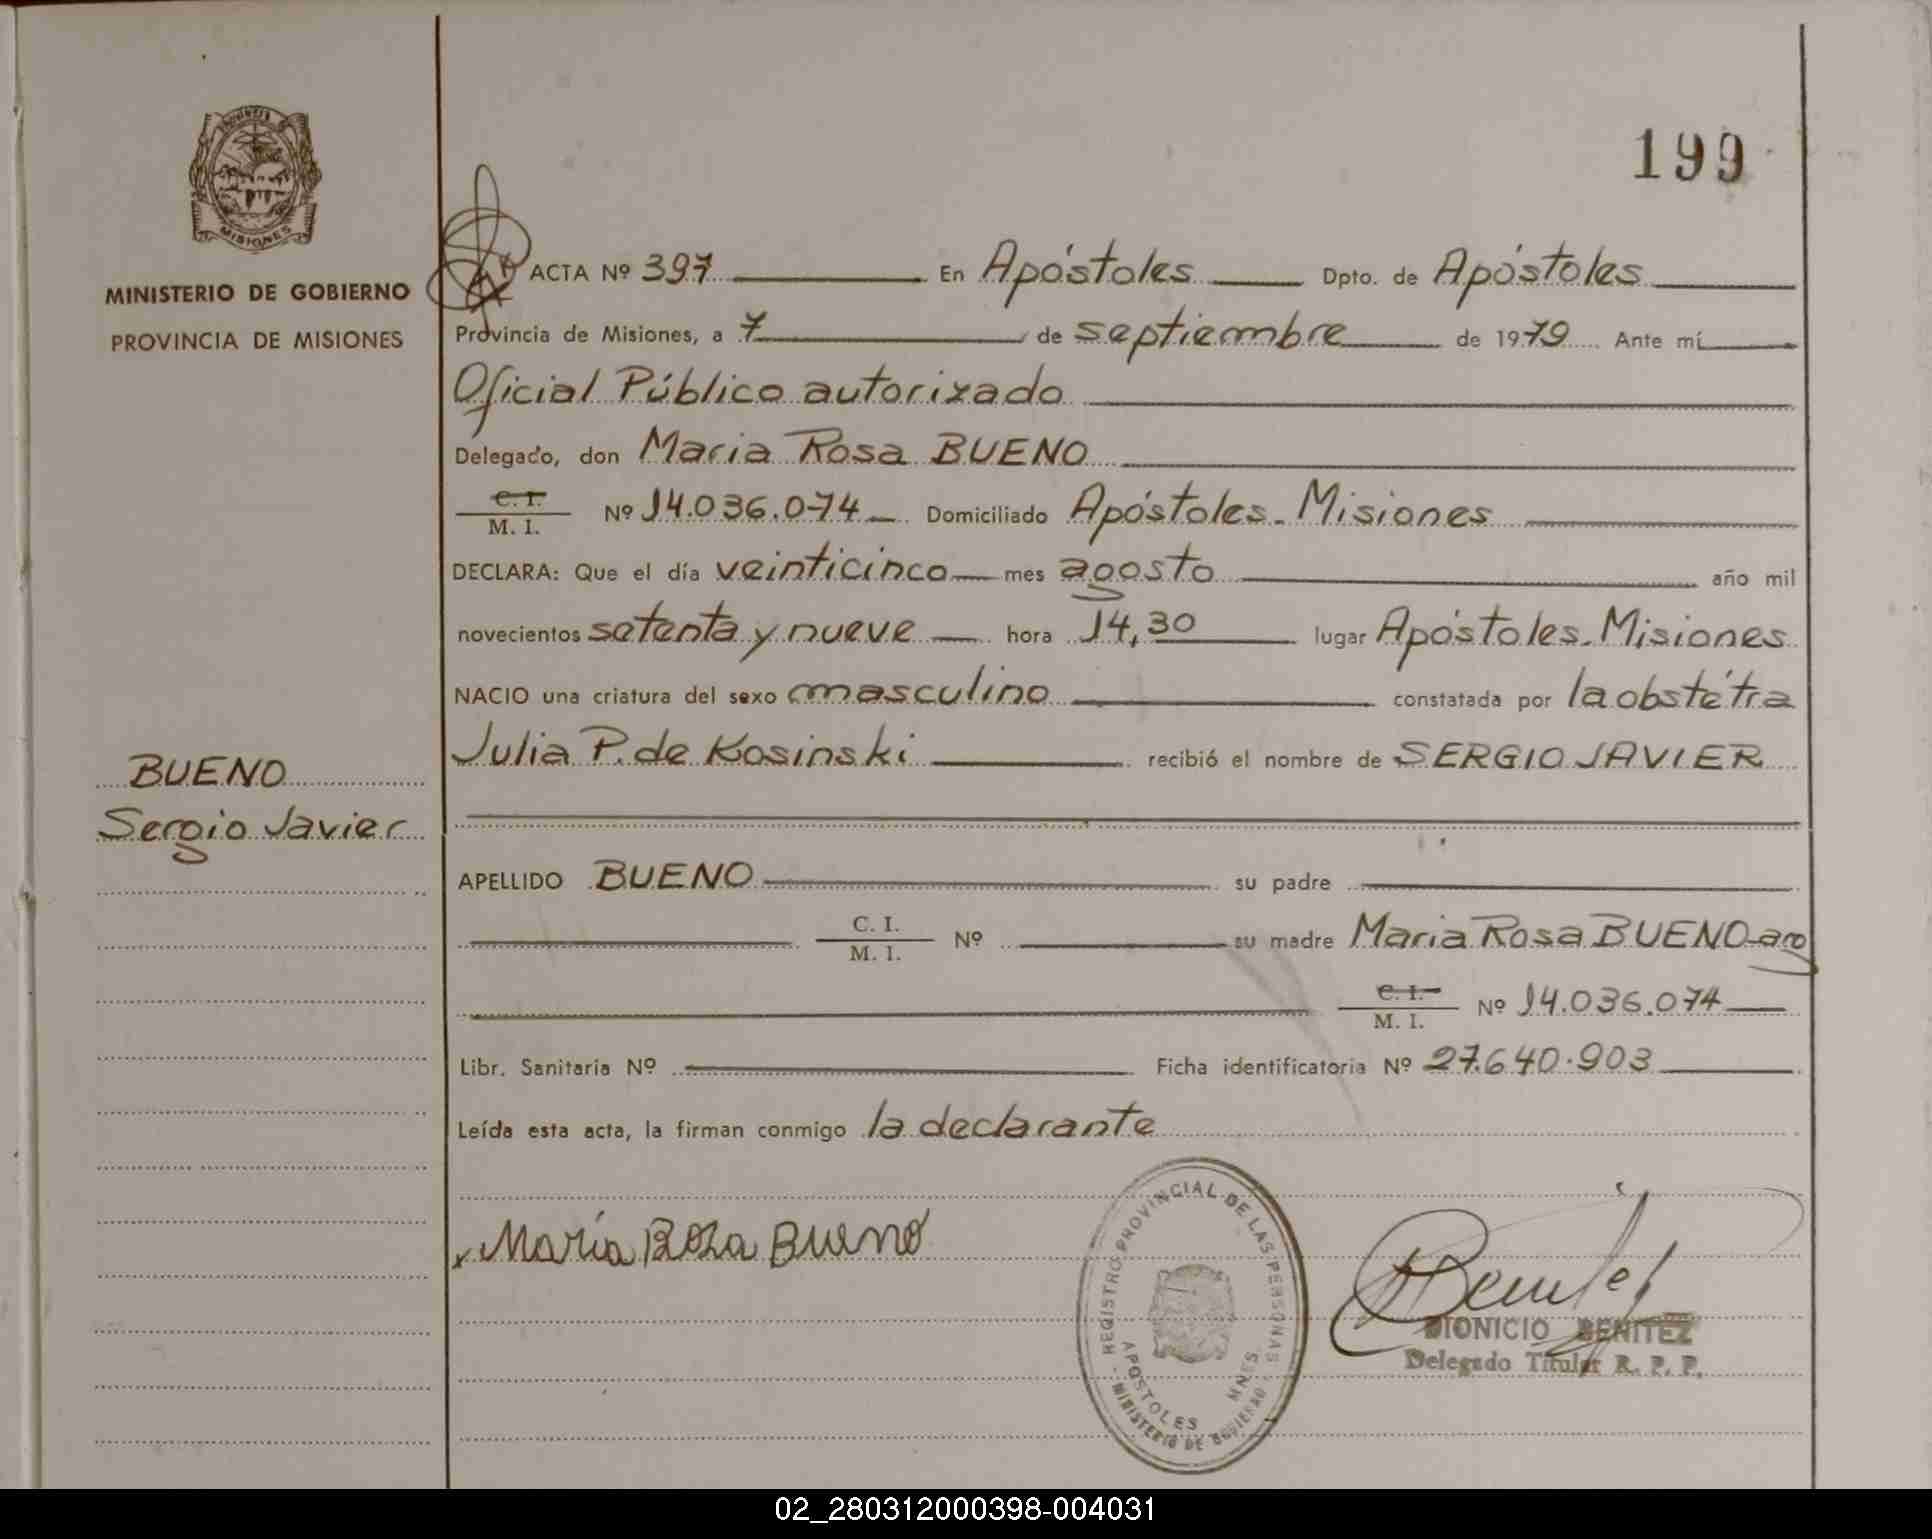 199
PROVINCIA
MISIONES
MINISTERIO DE GOBIERNO
PROVINCIA DE MISIONES
ACTA Nº 397 En Apóstoles Dpto. de Apóstoles
Provincia de Misiones, a 7 de septiembre de 1979 Ante mí
Oficial Público autorizado
Delegado, don Maria Rosa BUENO
C. I.
M. I. Nº 14.036.074 Domiciliado Apóstoles. Misiones
DECLARA: Que el día veinticinco mes agosto año mil
novecientos setenta y nueve hora 14,30 lugar Apóstoles. Misiones
NACIO una criatura del sexo masculino constatada por la obstétra
Julia P. de Kosinski recibió el nombre de SERGIO JAVIER
BUENO
Sergio Javier
APELLIDO BUENO su padre
C. I.
M. I. Nº su madre Maria Rosa BUENO arg
C. I.
M. I. Nº 14.036.074
Libr. Sanitaria Nº Ficha identificatoria Nº 27.640.903
Leída esta acta, la firman conmigo la declarante
María Rosa Bueno
REGISTRO PROVINCIAL DE LAS PERSONAS
APOSTOLES MNES.
MINISTERIO DE GOBIERNO
Benitez
DIONICIO BENITEZ
Delegado Titular R. P. P.
02_280312000398-004031